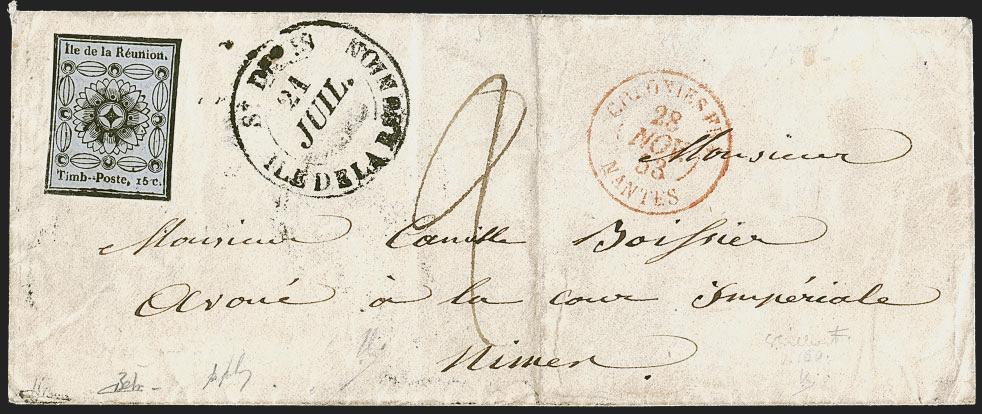 Ile de la Réunion.
Timb--Poste, 15 c.
St DENIS
21
JUIL.
ILE DE LA RÉUNION
COLONIES FR
28
NOV
53
NANTES
2
Monsieur
Monsieur Camille Boissier
Avoué à la cour Impériale
Nimes